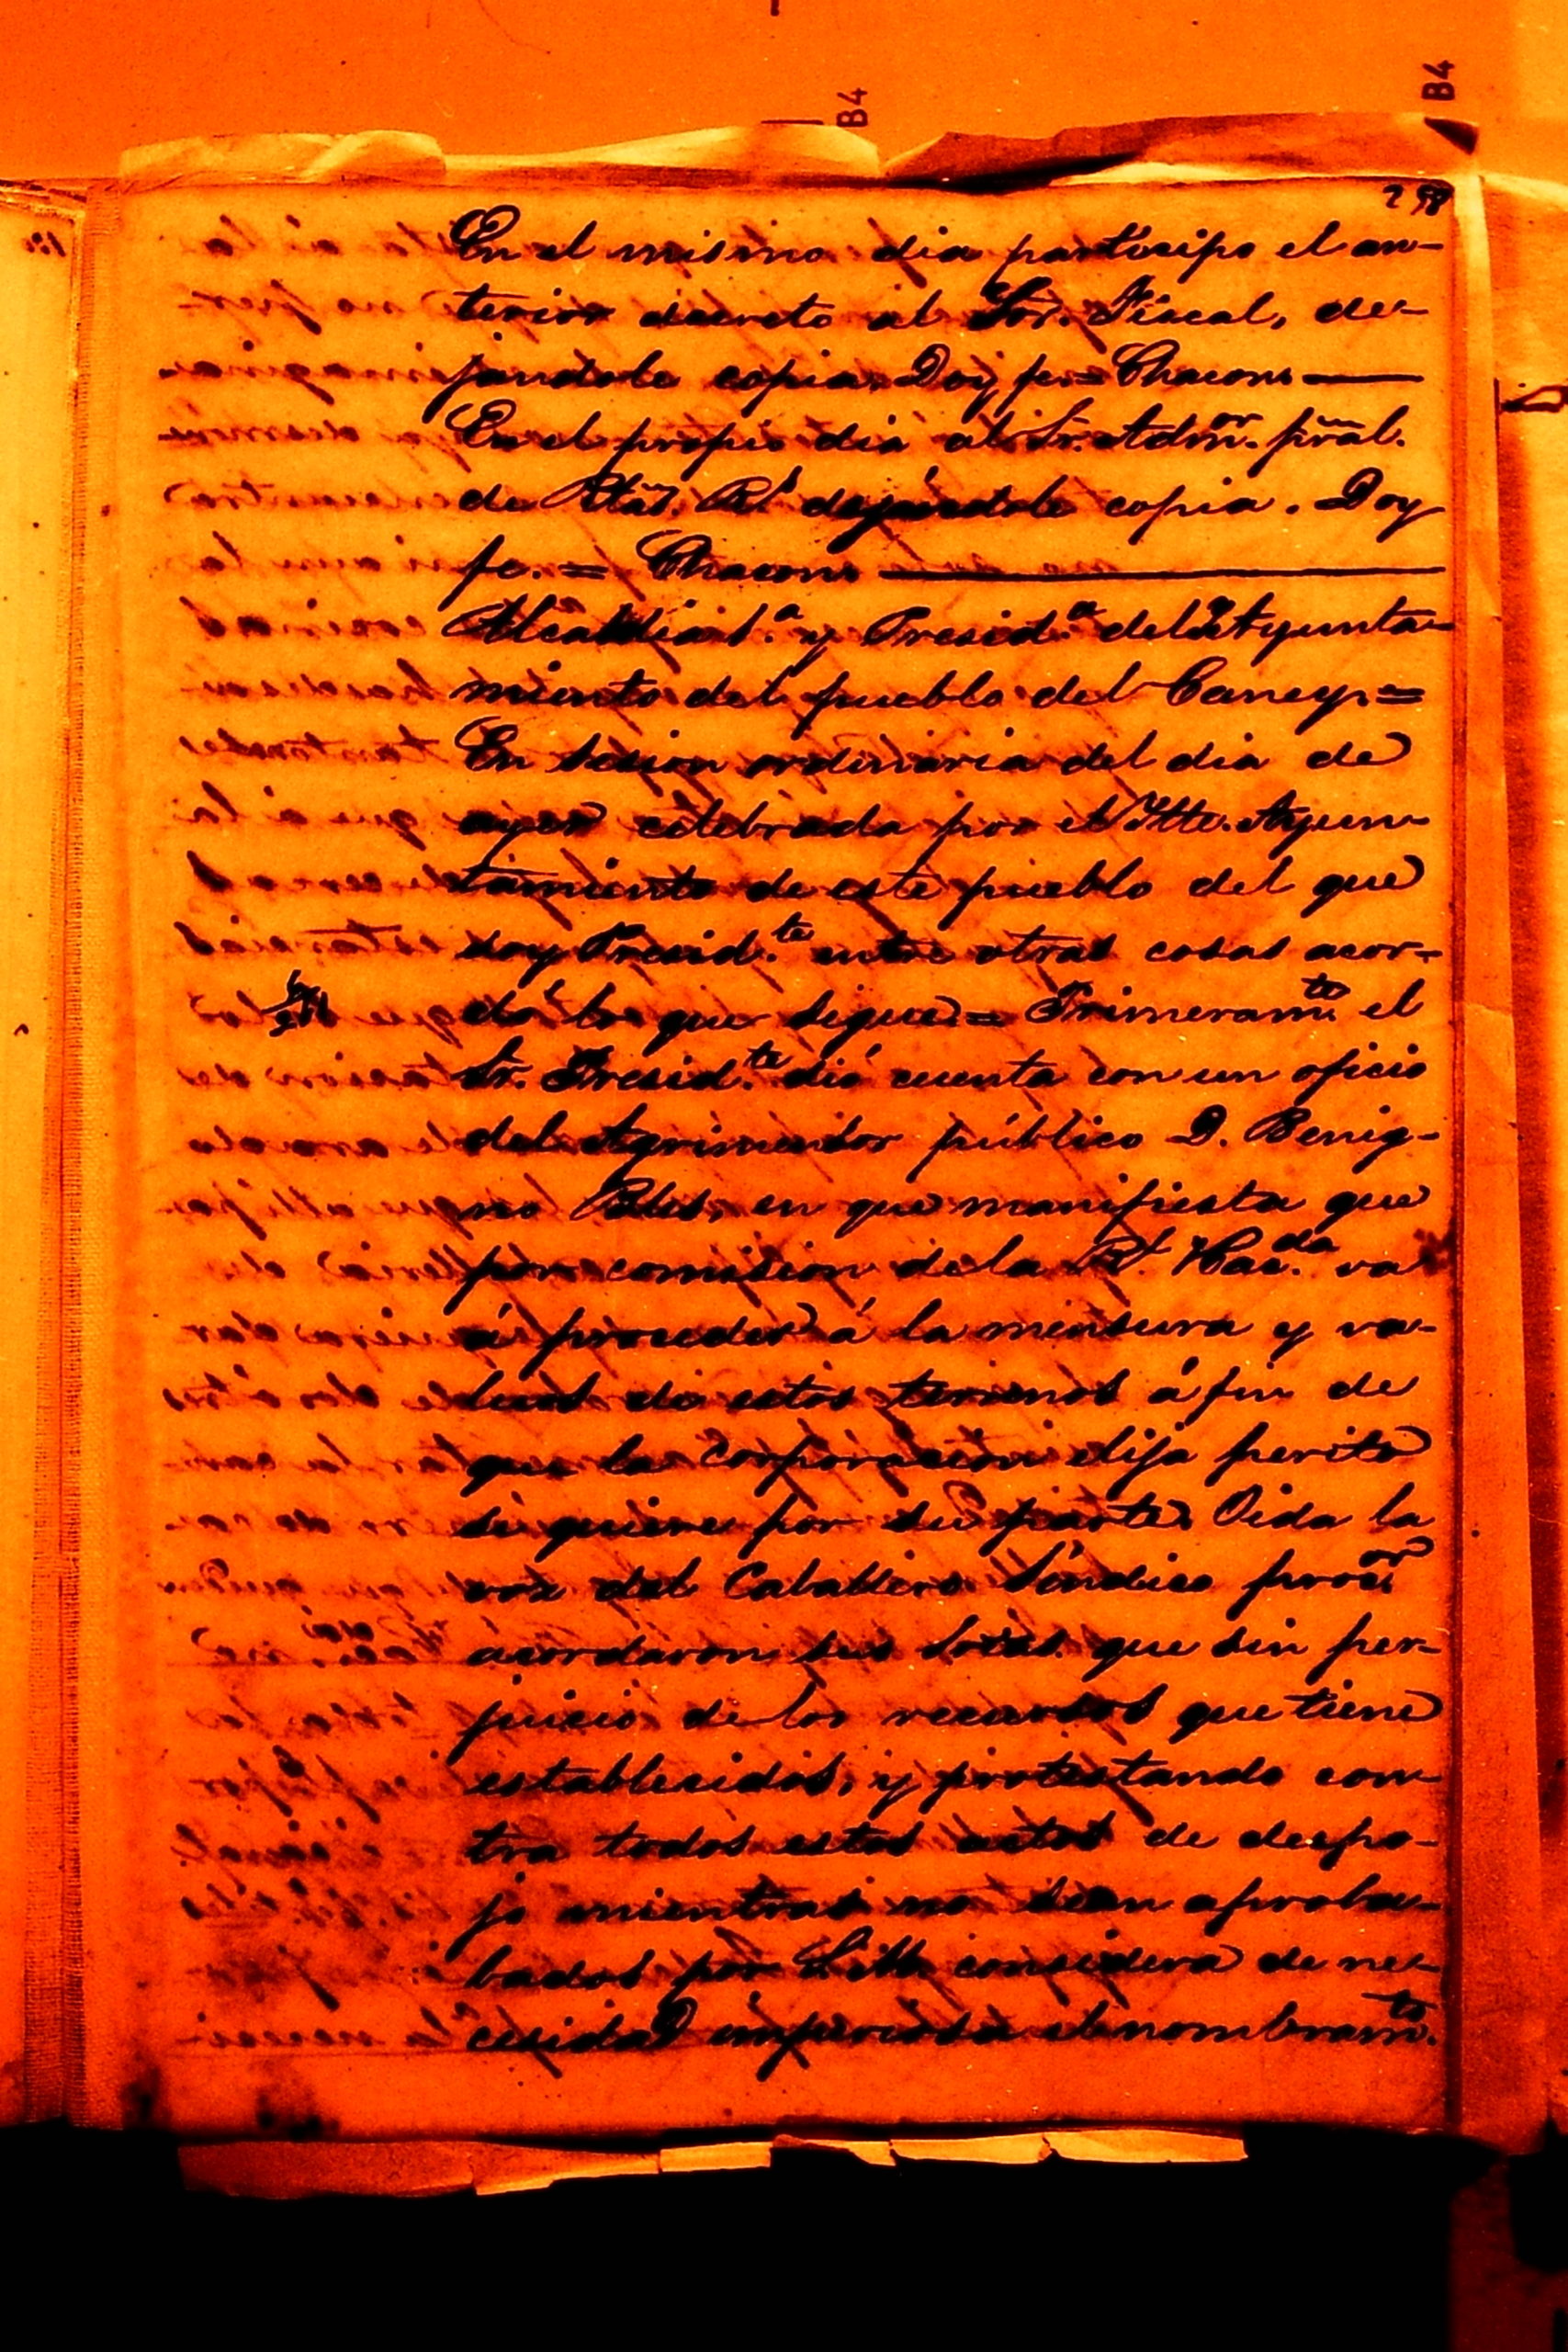 B4
B4
298
En el mismo dia participo el an-
terior decreto al Sor. Fiscal, de-
jandole copia. Doy fe = Chacon
En el propio dia al Sr. Admor. pral.
de Rtas. Rs. dejándole copia. Doy
fe. = Chacon
Alcaldia 1.a y Presid.a del Ayunta-
miento del pueblo del Caney. =
En sesion ordinaria del dia de
ayer celebrada por el Ilte. Ayun-
tamiento de este pueblo del que
soy Presid.te entre otras cosas acor-
dó lo que sigue. = Primeram.te el
Sr. Presid.te dió cuenta con un oficio
del Agrimensor público D. Benig-
no en que manifiesta que
por comision de la Rl. Hac.da va
á proceder á la mensura y va-
luos de estos terrenos á fin de
que la Corporacion elija perito
si quiere por su parte. Oida la
voz del Caballero Síndico procor.
acordaron sus que sin per-
juicio de los recursos que tiene
establecidos, y protestando con-
tra todos estos actos de despo-
jo mientras no sean aproba-
bados por S.M. considera de ne-
cesidad imperiosa el nombram.to